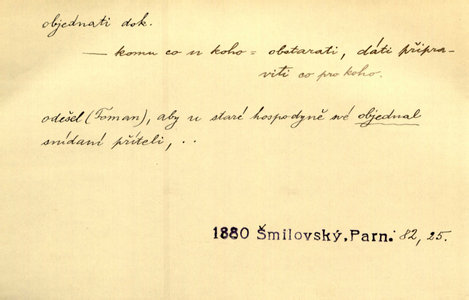 objednati dok.
— komu co u koho = obstarati, dáti připra-
viti co pro koho.
odešel (Toman), aby u staré hospodyně své objednal
snídani příteli, . .
1880 Šmilovský, Parn. 82, 25.